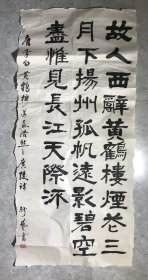 故人西辭黃鶴樓煙花三
月下揚州孤帆遠影碧空
盡惟見長江天際流
唐李白黃鶴樓送孟浩然之廣陵詩 書